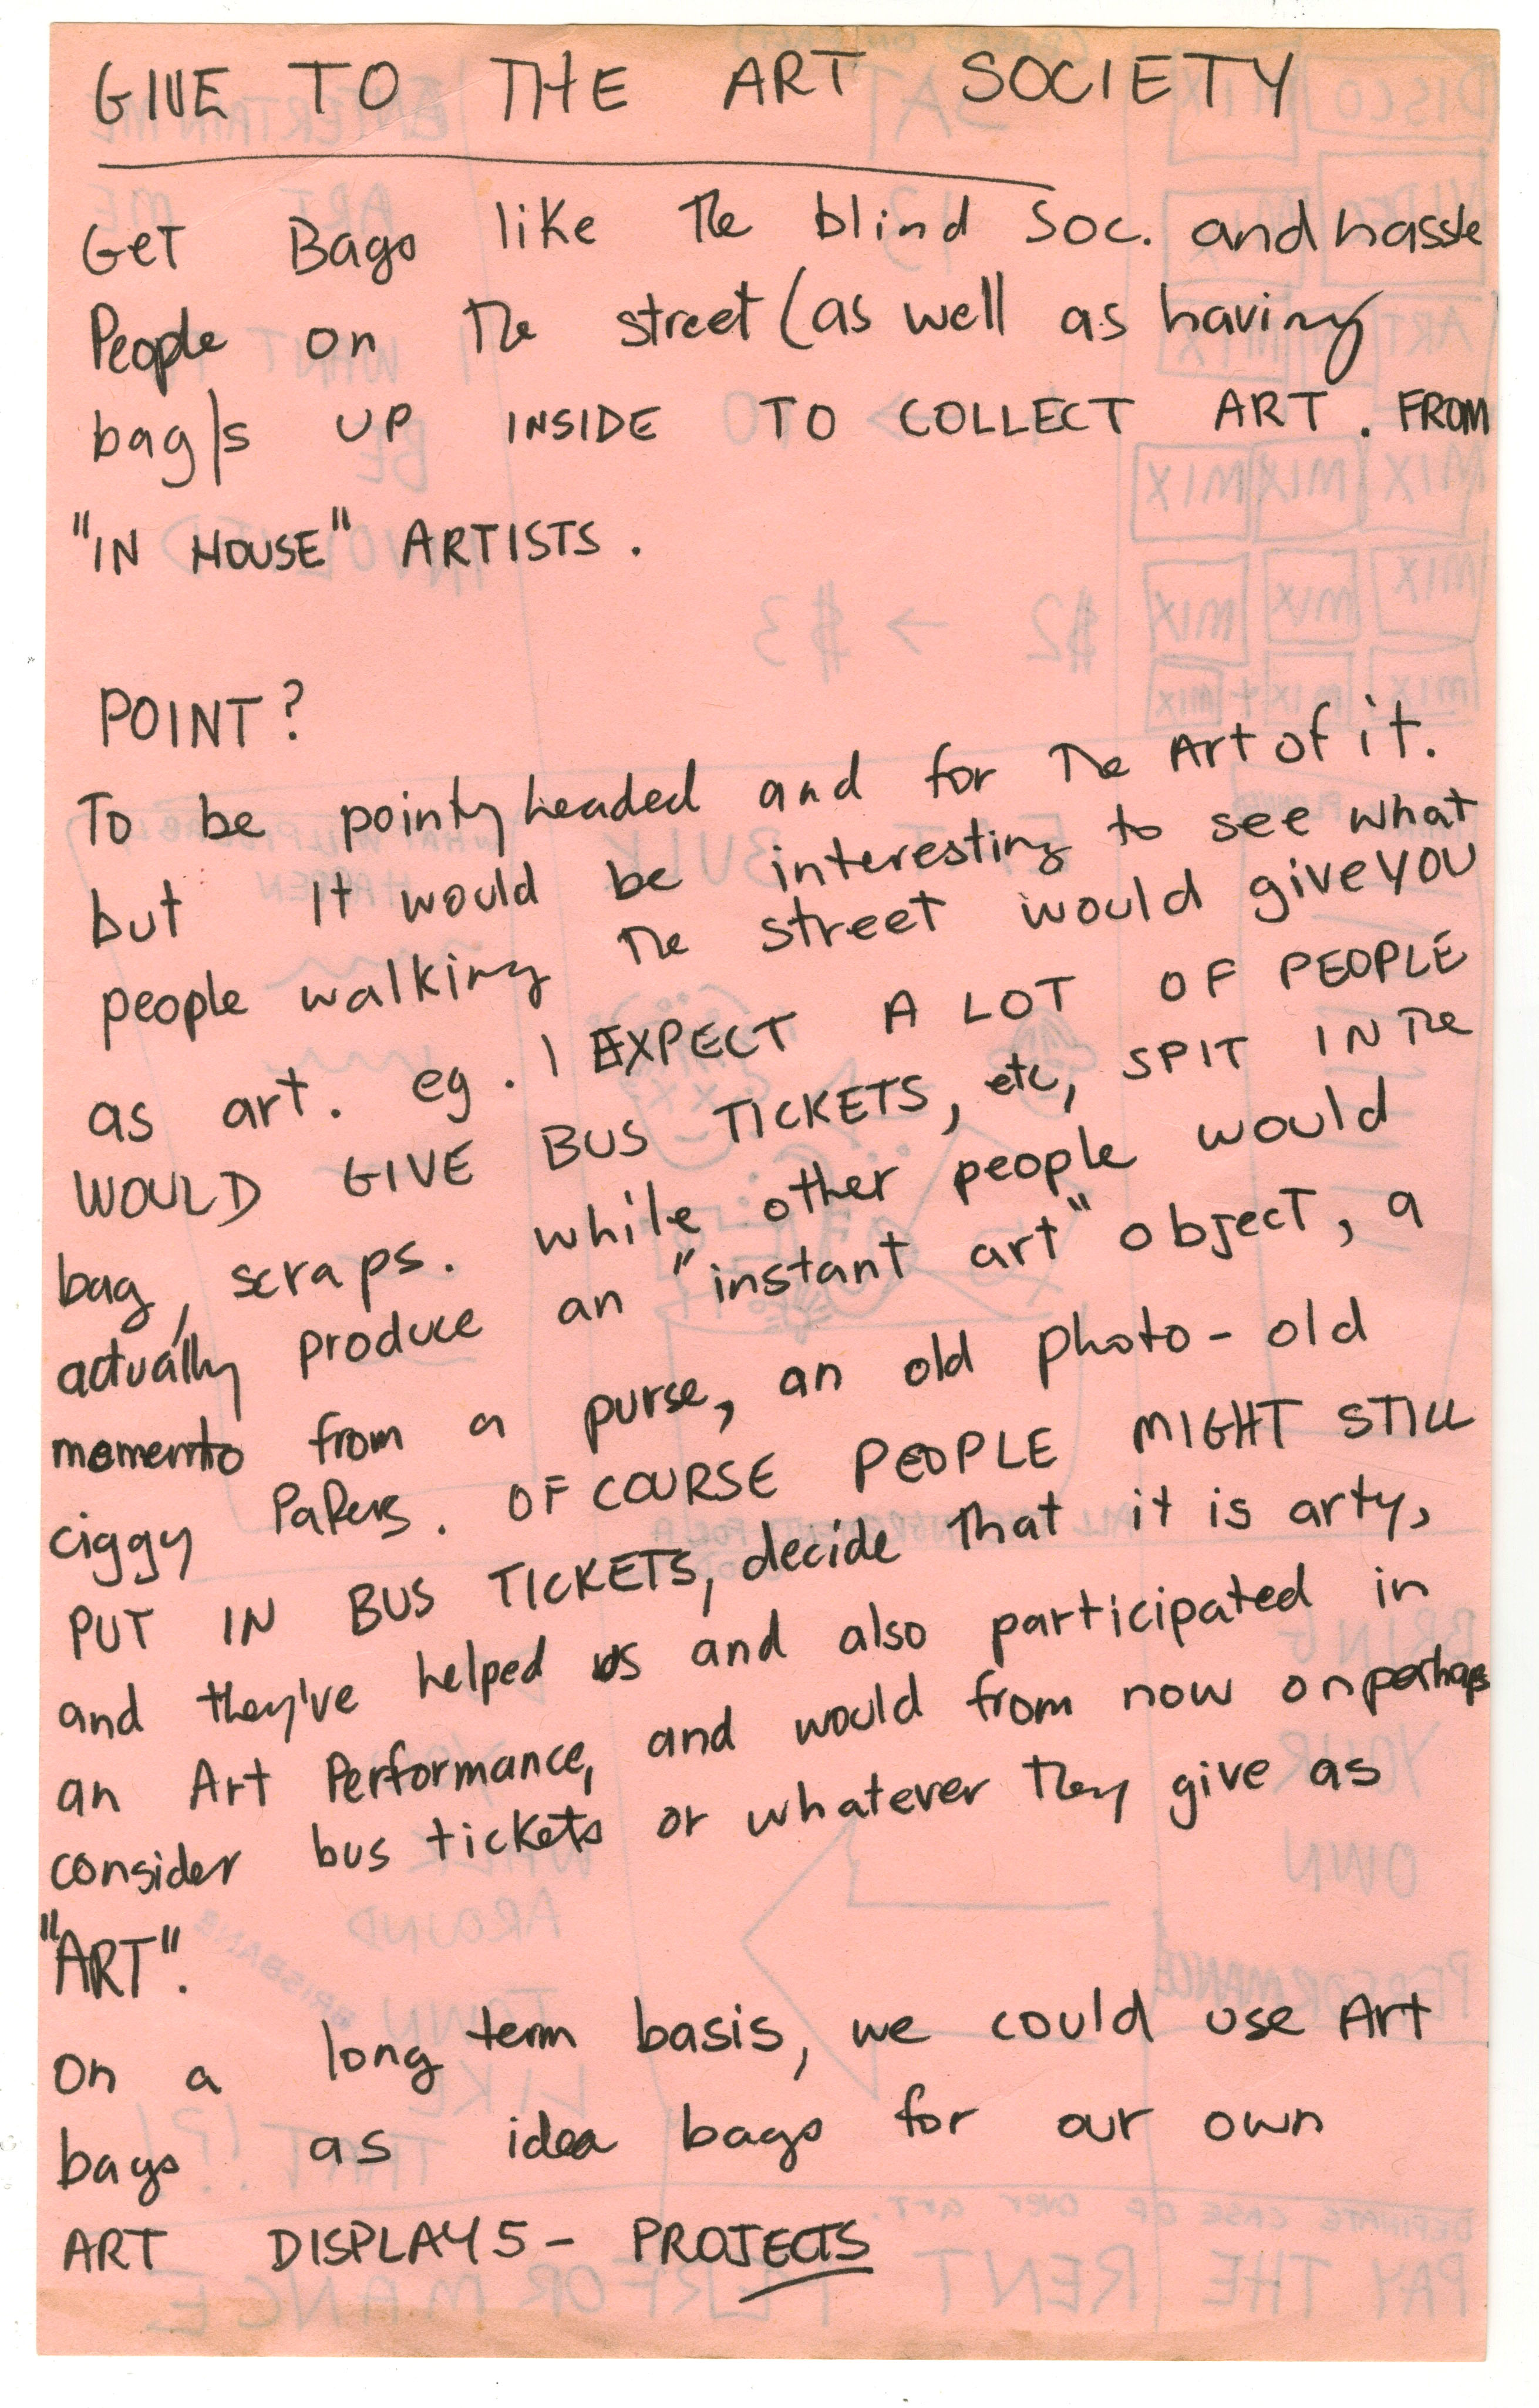 GIVE TO THE ART SOCIETY
Get Bags like the blind Soc. and hassle
People on the street (as well as having
bag/s UP INSIDE TO COLLECT ART. FROM
"IN HOUSE" ARTISTS.
POINT?
To be pointy headed and for the Art of it.
but it would be interesting to see what
people walking the street would give YOU
as art. eg. I EXPECT A LOT OF PEOPLE
WOULD GIVE BUS TICKETS, etc, SPIT IN the
bag, scraps. while other people would
actually produce an "instant art" object, a
momento from a purse, an old photo - old
ciggy Papers. OF COURSE PEOPLE MIGHT STILL
PUT IN BUS TICKETS, decide that it is arty,
and they've helped us and also participated in
an Art Performance, and would from now on perhaps
consider bus tickets or whatever they give as
"ART".
On a long term basis, we could use Art
bags as idea bags for our own
ART DISPLAYS - PROJECTS